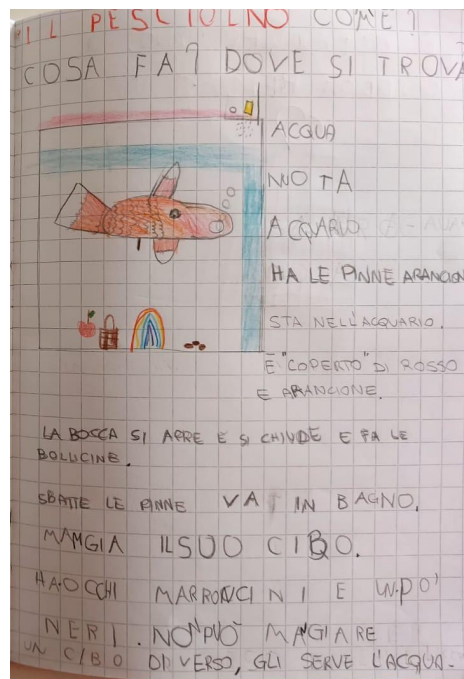 IL PESCIOLINO COM'È?
COSA FA? DOVE SI TROVA
ACQUA
NUOTA
ACQUARIO
HA LE PINNE ARANCION
STA NELL'ACQUARIO.
È "COPERTO" DI ROSSO
E ARANCIONE.
LA BOSCA SI APRE E SI CHIUDE E FA LE
BOLLICINE.
SBATTE LE PINNE VA IN BAGNO.
MANGIA IL SUO CIBO.
HA OCCHI MARRONCINI E UN PO'
NERI. NON PUÒ MAGIARE
UN CIBO DIVERSO, GLI SERVE L'ACQUA.